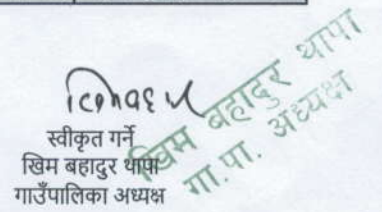 स्वीकृत गर्ने
खिम बहादुर थापा
गाउँपालिका अध्यक्ष
खिम बहादुर थापा
गा.पा. अध्यक्ष